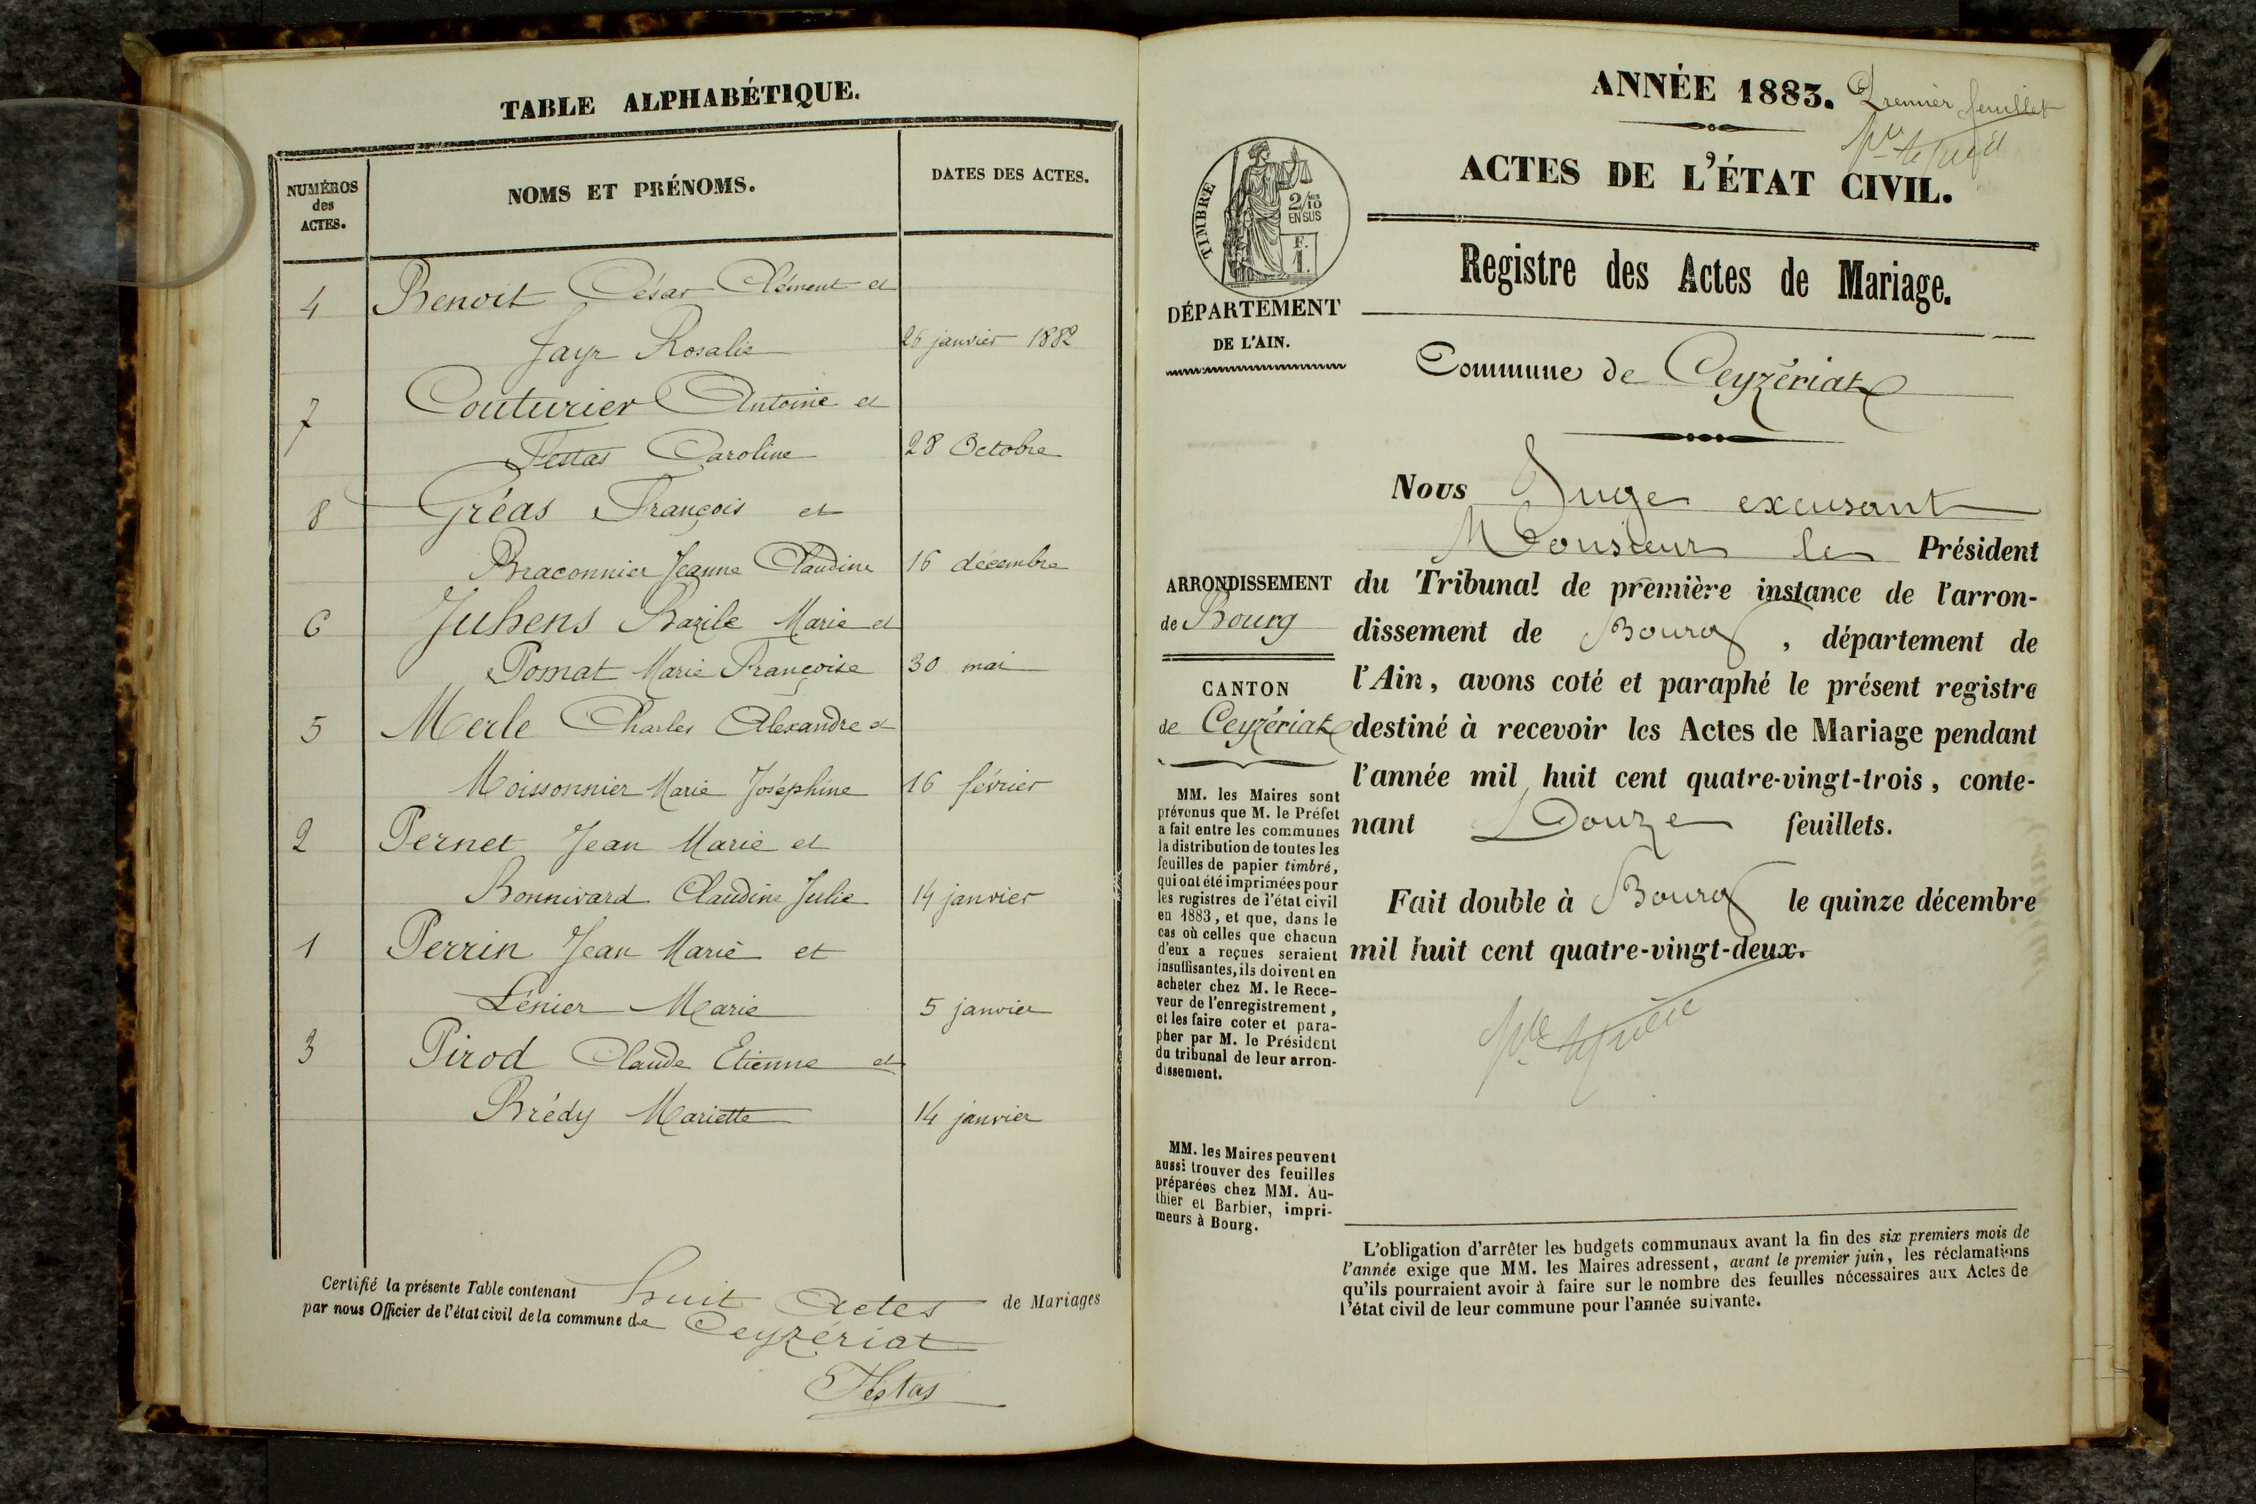 TABLE ALPHABÉTIQUE.
NUMÉROS
des
ACTES.
NOMS ET PRÉNOMS.
DATES DES ACTES.
4 Benoit César Clément et
Jayr Rosalie 26 janvier 1882
7 Couturier Antoine et
Festas Caroline 28 Octobre
8 Gréas François et
Braconnier Jeanne Claudine 16 décembre
6 Juhens Bazile Marie et
Pomat Marie Françoise 30 mai
5 Merle Charles Alexandre et
Moissonnier Marie Joséphine 16 février
2 Pernet Jean Marie et
Bonnivard Claudine Julie 14 janvier
1 Perrin Jean Marie et
Lénier Marie 5 janvier
3 Pirod Claude Etienne et
Brédy Mariette 14 janvier
Certifié la présente Table contenant huit Actes de Mariages
par nous Officier de l'état civil de la commune de Ceyzériat
Festas
ANNÉE 1883.
Premier feuillet
ACTES DE L'ÉTAT CIVIL.
TIMBRE
2/10
EN SUS
F.
1.
Registre des Actes de Mariage.
DÉPARTEMENT
DE L'AIN.
Commune de Ceyzériat
Nous Juge excusant
Monsieur le Président
du Tribunal de première instance de l'arron-
dissement de Bourg, département de
l'Ain, avons coté et paraphé le présent registre
destiné à recevoir les Actes de Mariage pendant
l'année mil huit cent quatre-vingt-trois, conte-
nant Douze feuillets.
Fait double à Bourg le quinze décembre
mil huit cent quatre-vingt-deux.
ARRONDISSEMENT
de Bourg
CANTON
de Ceyzériat
MM. les Maires sont
prévenus que M. le Préfet
a fait entre les communes
la distribution de toutes les
feuilles de papier timbré,
qui ont été imprimées pour
les registres de l'état civil
en 1883, et que, dans le
cas où celles que chacun
d'eux a reçues seraient
insuffisantes, ils doivent en
acheter chez M. le Rece-
veur de l'enregistrement,
et les faire coter et para-
pher par M. le Président
du tribunal de leur arron-
dissement.
MM. les Maires peuvent
aussi trouver des feuilles
préparées chez MM. Au-
thier et Barbier, impri-
meurs à Bourg.
L'obligation d'arrêter les budgets communaux avant la fin des six premiers mois de
l'année exige que MM. les Maires adressent, avant le premier juin, les réclamations
qu'ils pourraient avoir à faire sur le nombre des feuilles nécessaires aux Actes de
l'état civil de leur commune pour l'année suivante.